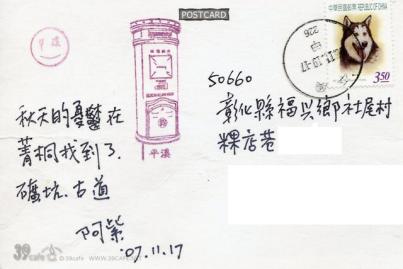 POSTCARD
平溪
中華民國郵票 REPUBLIC OF CHINA
350
226
平溪
50660
彰化縣福兴鄉社尾村
粿店巷
秋天的憂鬱在
菁桐找到了.
礦坑.古道
阿紫
'07.11.17
39cafe ©39cafe WWW.39CAFE